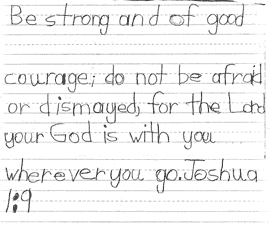 Be strong and of good
courage; do not be afraid
or dismayed, for the Lord
your God is with you
wherever you go. Joshua
1:9